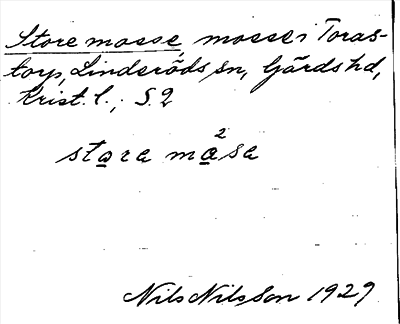 Store mosse, mosse i Toras-
torp, Linderöds sn, Gärds hd,
Krist. l., S. 2
stora mo²sa
Nils Nilsson 1929